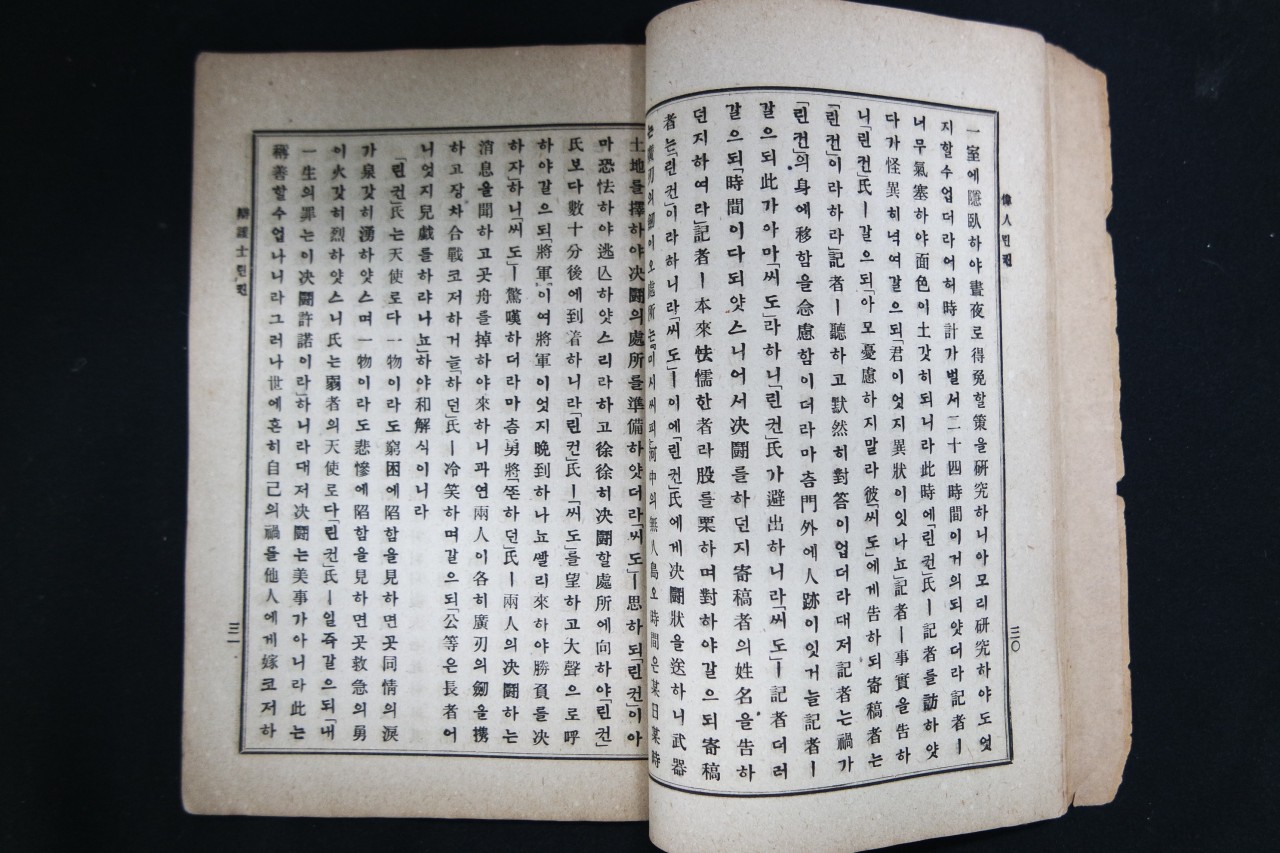 偉人린컨
三〇
一室에隱臥하야晝夜로得免할策을硏究하니아모리硏究하야도엇
지할수업더라어허時計가벌서二十四時間이거의되얏더라記者ㅣ
너무氣塞하야面色이土갓히되니라此時에「린컨」氏ㅣ記者를訪하얏
다가怪異히녁여갈으되「君이엇지異狀이잇나뇨」記者ㅣ事實을告하
니「린컨」氏ㅣ갈으되「아모憂慮하지말라彼「써도」에게告하되寄稿者는
「린컨」이라하라」記者ㅣ聽하고默然히對答이업더라대저記者는禍가
「린컨」의身에移함을念慮함이더라마츰門外에人跡이잇거늘記者ㅣ
갈으되此가아마「써도」라하니「린컨」氏가避出하니라「써도」ㅣ記者더러
갈으되「時間이다되얏스니어서决鬪를하던지寄稿者의姓名을告하
던지하여라」記者ㅣ本來怯懦한者라股를栗하며對하야갈으되寄稿
者는「린컨」이라하니라「써도」ㅣ이에「린컨」氏에게决鬪狀을送하니武器
는廣刃의劒이오處所는「미시씨피」河中의無人島오時間은某日某時
土地를擇하야决鬪의處所를準備하얏더라「써도」ㅣ思하되「린컨」이아
마恐怯하야逃亾하얏스리라하고徐徐히决鬪할處所에向하야「린컨」
氏보다數十分後에到着하니라「린컨」氏ㅣ「써도」를望하고大聲으로呼
하야갈으되「將軍」이여將軍이엇지晩到하나뇨쌜리來하야勝負를决
하자」하니「써도」ㅣ驚嘆하더라마츰勇將「쪼하던」氏ㅣ兩人의决鬪하는
消息을聞하고곳舟를掉하야來하니과연兩人이各히廣刃의劒을携
하고장차合戰코저하거늘「하던」氏ㅣ冷笑하며갈으되「公等은長者어
니엇지兒戲를하랴나뇨」하야和解식이니라
「린컨」氏는天使로다一物이라도窮困에陷함을見하면곳同情의淚
가泉갓히湧하얏스며一物이라도悲慘에陷함을見하면곳救急의勇
이火갓히烈하얏스니氏는弱者의天使로다「린컨」氏ㅣ일즉갈으되「내
一生의罪는이决鬪許諾이라」하니라대저决鬪는美事가아니라此는
稱善할수업나니라그러나世에흔히自己의禍를他人에게嫁코저하
辯護士린컨
三一